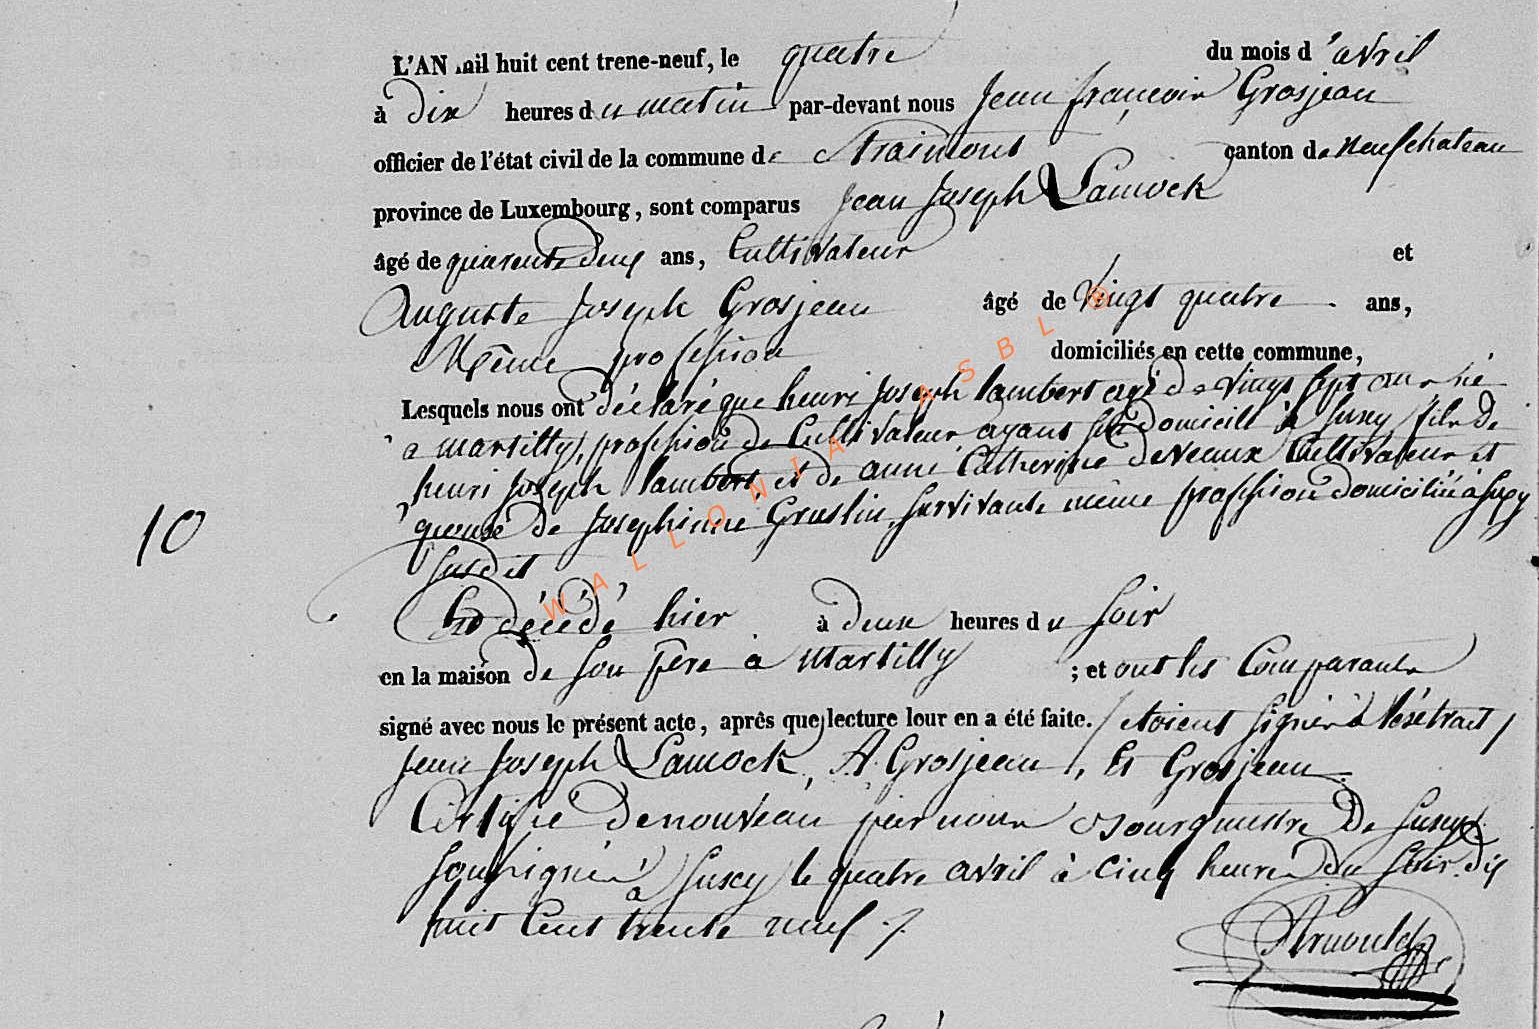 L'AN mil huit cent trene-neuf, le quatre du mois d'avril
à dix heures du matin par-devant nous Jean françois Grosjean
officier de l'état civil de la commune de Straimont canton de neufchateau
province de Luxembourg, sont comparus Jean Joseph Lamock
âgé de quarente deux ans, Cultivateur et
Auguste Joseph Grosjean âgé de Vingt quatre ans,
Même profession domiciliés en cette commune,
Lesquels nous ont déclaré que henri Joseph lambert agé de Vingt sept ans né
a martilly, profession de Cultivateur ayant son domicile à Suxy, fils de
henri Joseph lambert et de anne Catherine deveaux Cultivateur et
epouse de Josephinne Gruslin, Survivante même profession domiciliée à Suxy
susdit
Est décédé hier à deux heures du soir
en la maison de son père à Martilly ; et ont les Comparants
signé avec nous le présent acte, après que lecture leur en a été faite. / etoient signés à l'extrait /
Jean Joseph Lamock, A. Grosjean, Et Grosjean.
Certifié Denouveau par nous Bourgmestre De Suxy
soussigné à Suxy le quatre avril à cinq heures du soir dix
huit Cent trente neuf ./.
Arnould
10
WALLONIA ASBL ®